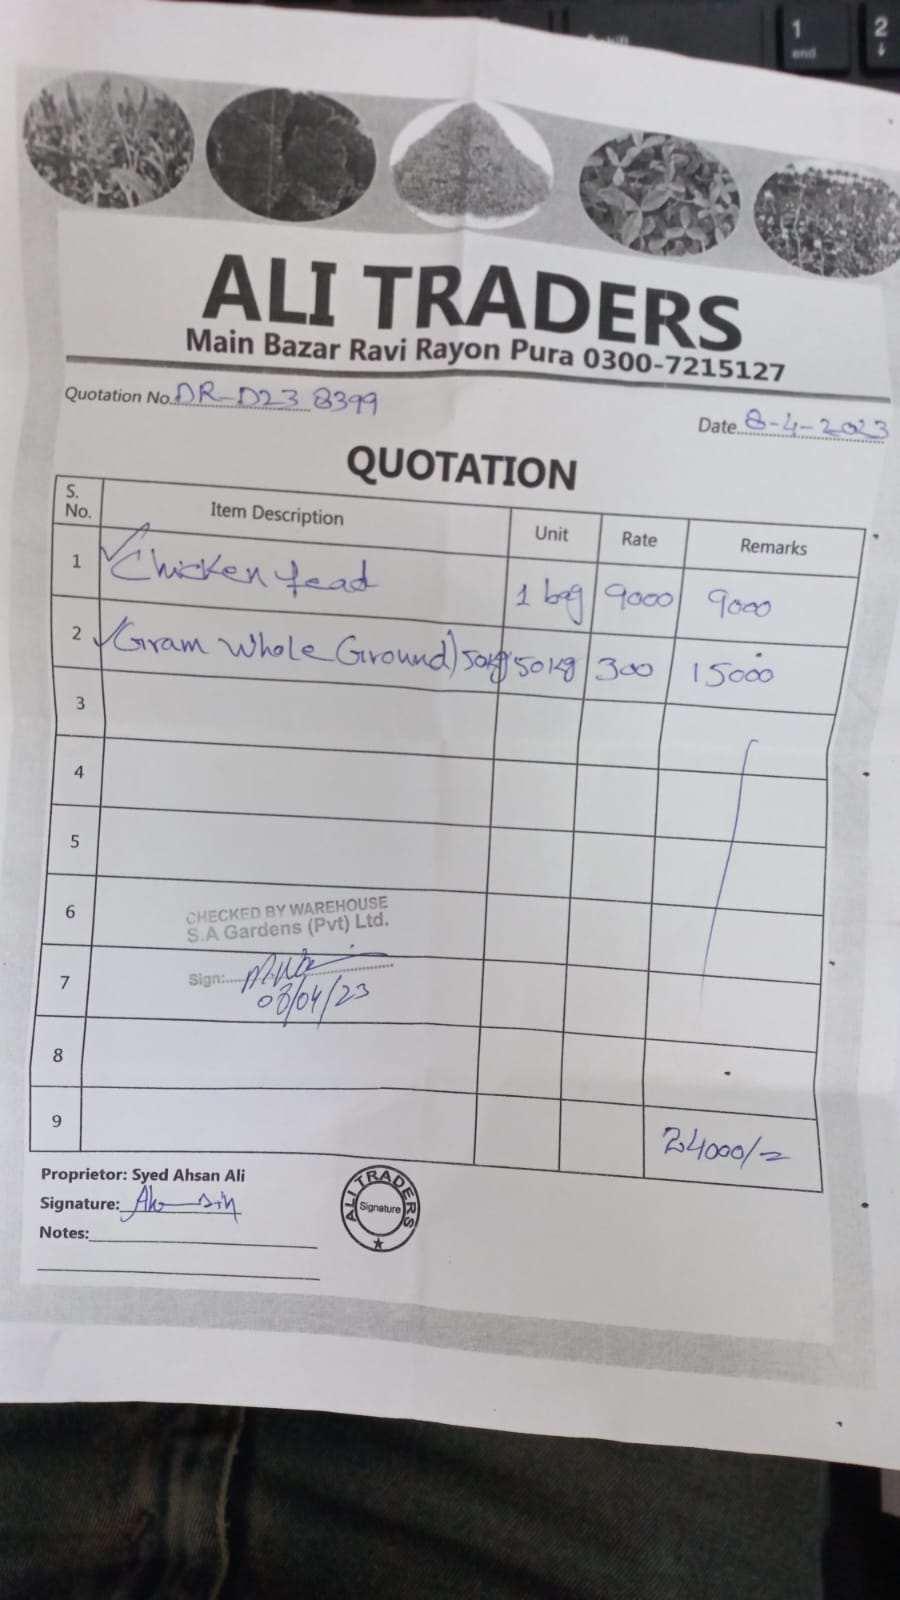 1
end
2
ALI TRADERS
Main Bazar Ravi Rayon Pura 0300-7215127
Quotation No. DR-D23 8399
Date 8-4-2023
QUOTATION
S. No. Item Description Unit Rate Remarks
1 Chicken fead 1 bag 9000 9000
2 (Gram Whole Ground) 50kg 50kg 300 15000
3
4
5
6
CHECKED BY WAREHOUSE
S.A Gardens (Pvt) Ltd.
7
Sign:
08/04/23
8
9 24000/=
Proprietor: Syed Ahsan Ali
Signature:
Notes:
ALI TRADERS
Signature